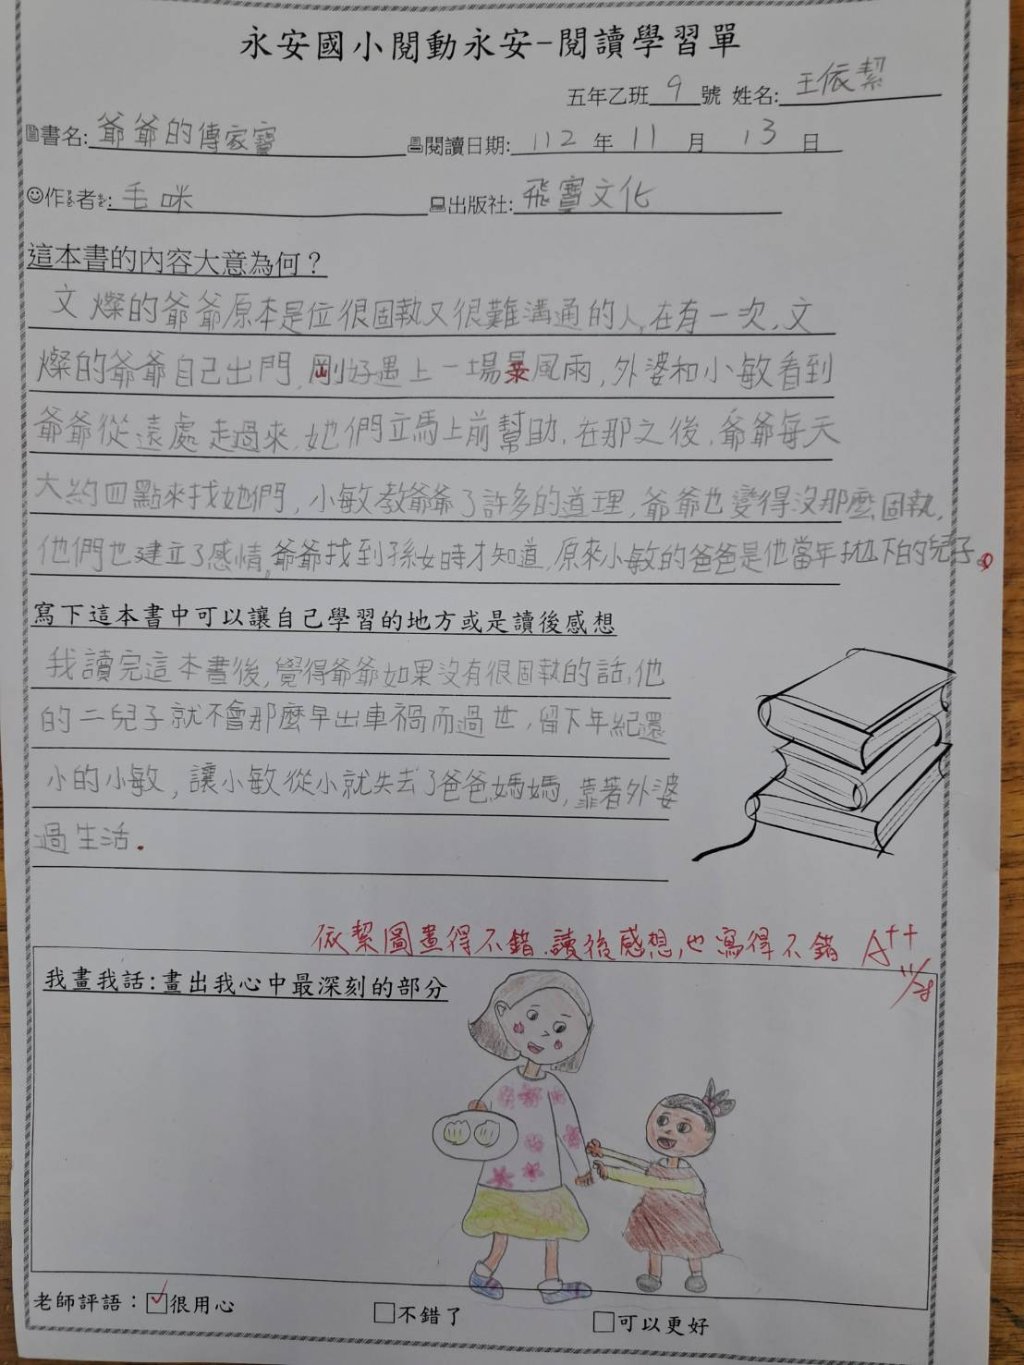 永安國小閱動永安-閱讀學習單
五年乙班 9 號 姓名: 王依絜
書名: 爺爺的傳家寶 閱讀日期: 112 年 11 月 13 日
作者: 毛咪 出版社: 飛寶文化
這本書的內容大意為何？
文燦的爺爺原本是位很固執又很難溝通的人,在有一次,文
燦的爺爺自己出門,剛好遇上一場暴風雨,外婆和小敏看到
爺爺從遠處走過來,她們立馬上前幫助,在那之後,爺爺每天
大約四點來找她們,小敏教爺爺了許多的道理,爺爺也變得沒那麼固執,
他們也建立了感情,爺爺找到孫女時才知道,原來小敏的爸爸是他當年拋下的兒子。
寫下這本書中可以讓自己學習的地方或是讀後感想
我讀完這本書後,覺得爺爺如果沒有很固執的話,他
的二兒子就不會那麼早出車禍而過世,留下年紀還
小的小敏,讓小敏從小就失去了爸爸媽媽,靠著外婆
過生活.
依絜圖畫得不錯.讀後感想,也寫得不錯 A++
我畫我話:畫出我心中最深刻的部分
老師評語：☑很用心 □不錯了 □可以更好